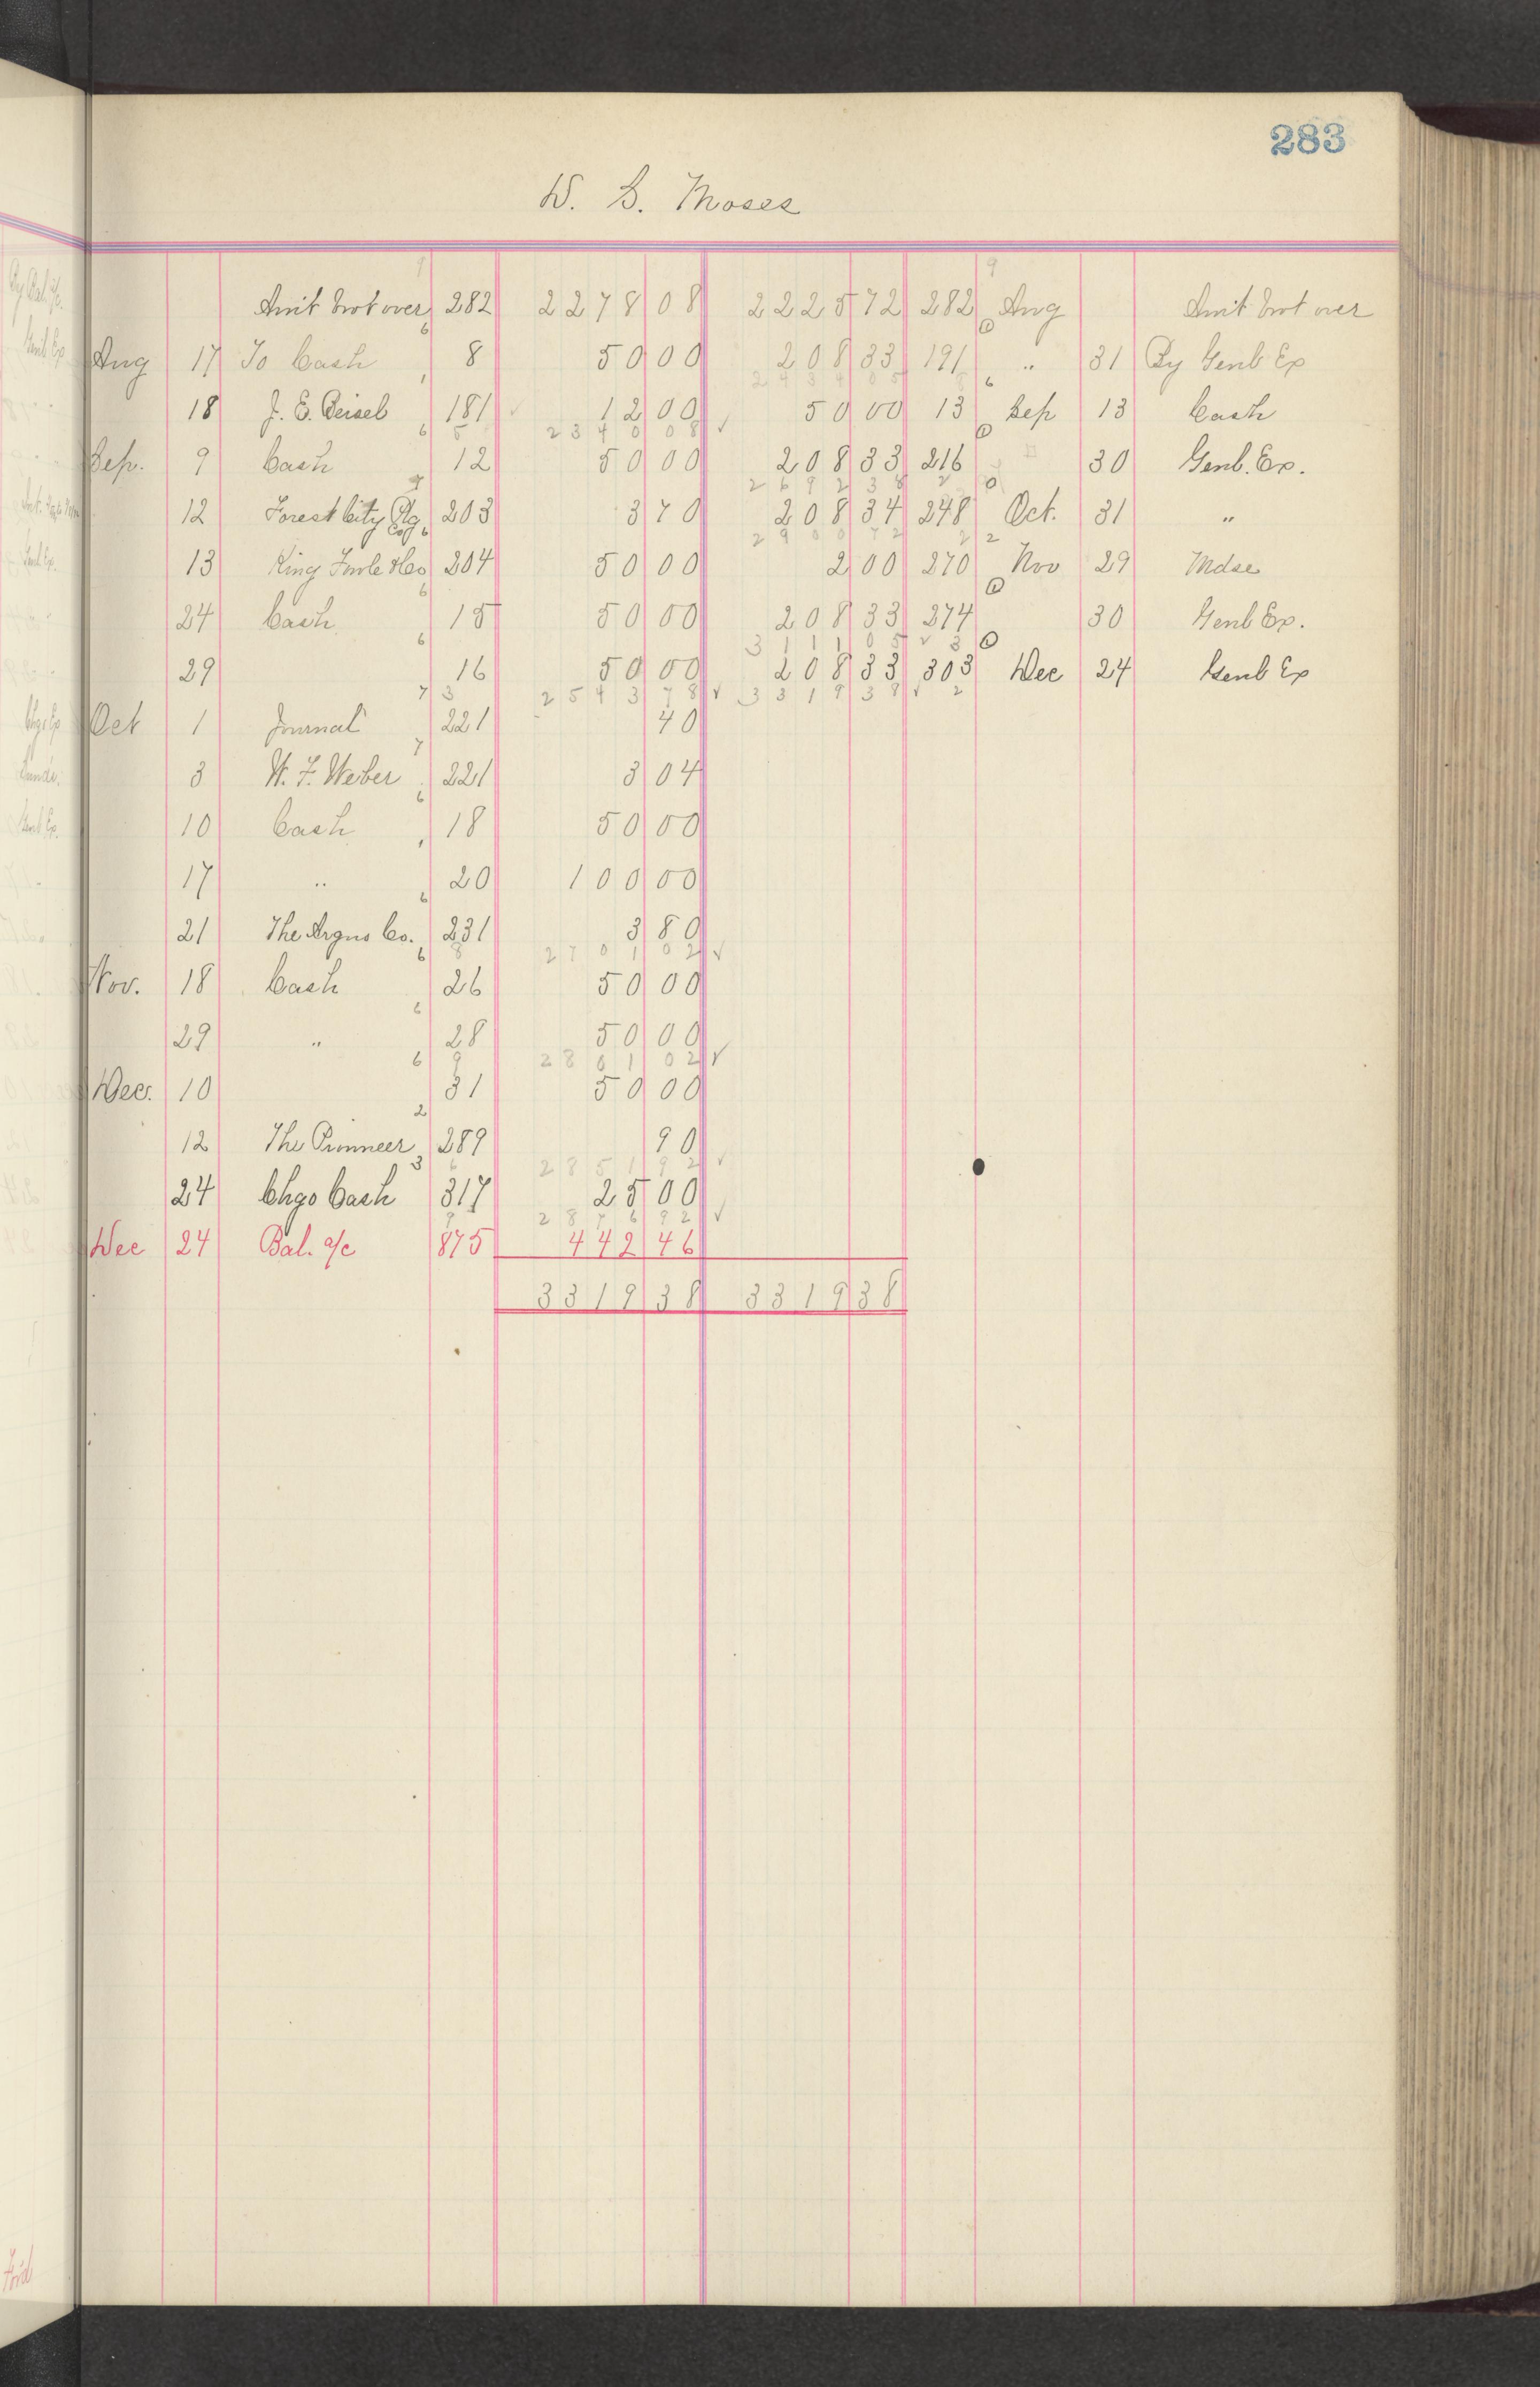 283
W. S. Moses
Amt brot over 282 2278 08 2225 72 282 Aug Amt brot over
Aug 17 To Cash 8 50 00 208 33 191 " 31 By Genl Ex
2434 05
18 J. E. Beisel 181 12 00 50 00 13 Sep 13 Cash
2340 08
Sep. 9 Cash 12 50 00 208 33 216 30 Genl. Ex.
2692 38
12 Forest City 203 3 70 208 34 248 Oct. 31 "
2900 72
13 King Fowle & Co 204 50 00 2 00 270 Nov 29 Mdse
24 Cash 15 50 00 208 33 274 30 Genl Ex.
3111 05
29 16 50 00 208 33 303 Dec 24 Genl Ex
2543 78 3319 38
Oct 1 Journal 221 40
3 W. F. Weber 221 3 04
10 Cash 18 50 00
17 " 20 100 00
21 The Argus Co. 231 3 80
2701 02
Nov. 18 Cash 26 50 00
29 " 28 50 00
2801 02
Dec. 10 31 50 00
12 The Pionneer 289 90
2851 92
24 Chgo Cash 317 25 00
2876 92
Dec 24 Bal. a/c 875 442 46
3319 38 3319 38